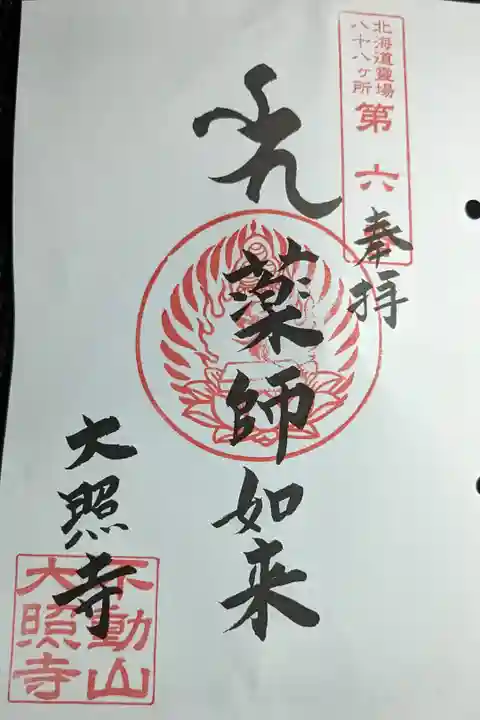 北海道霊場
八十八ヶ所
第六
奉拝
薬師如来
大照寺
不動山
大照寺